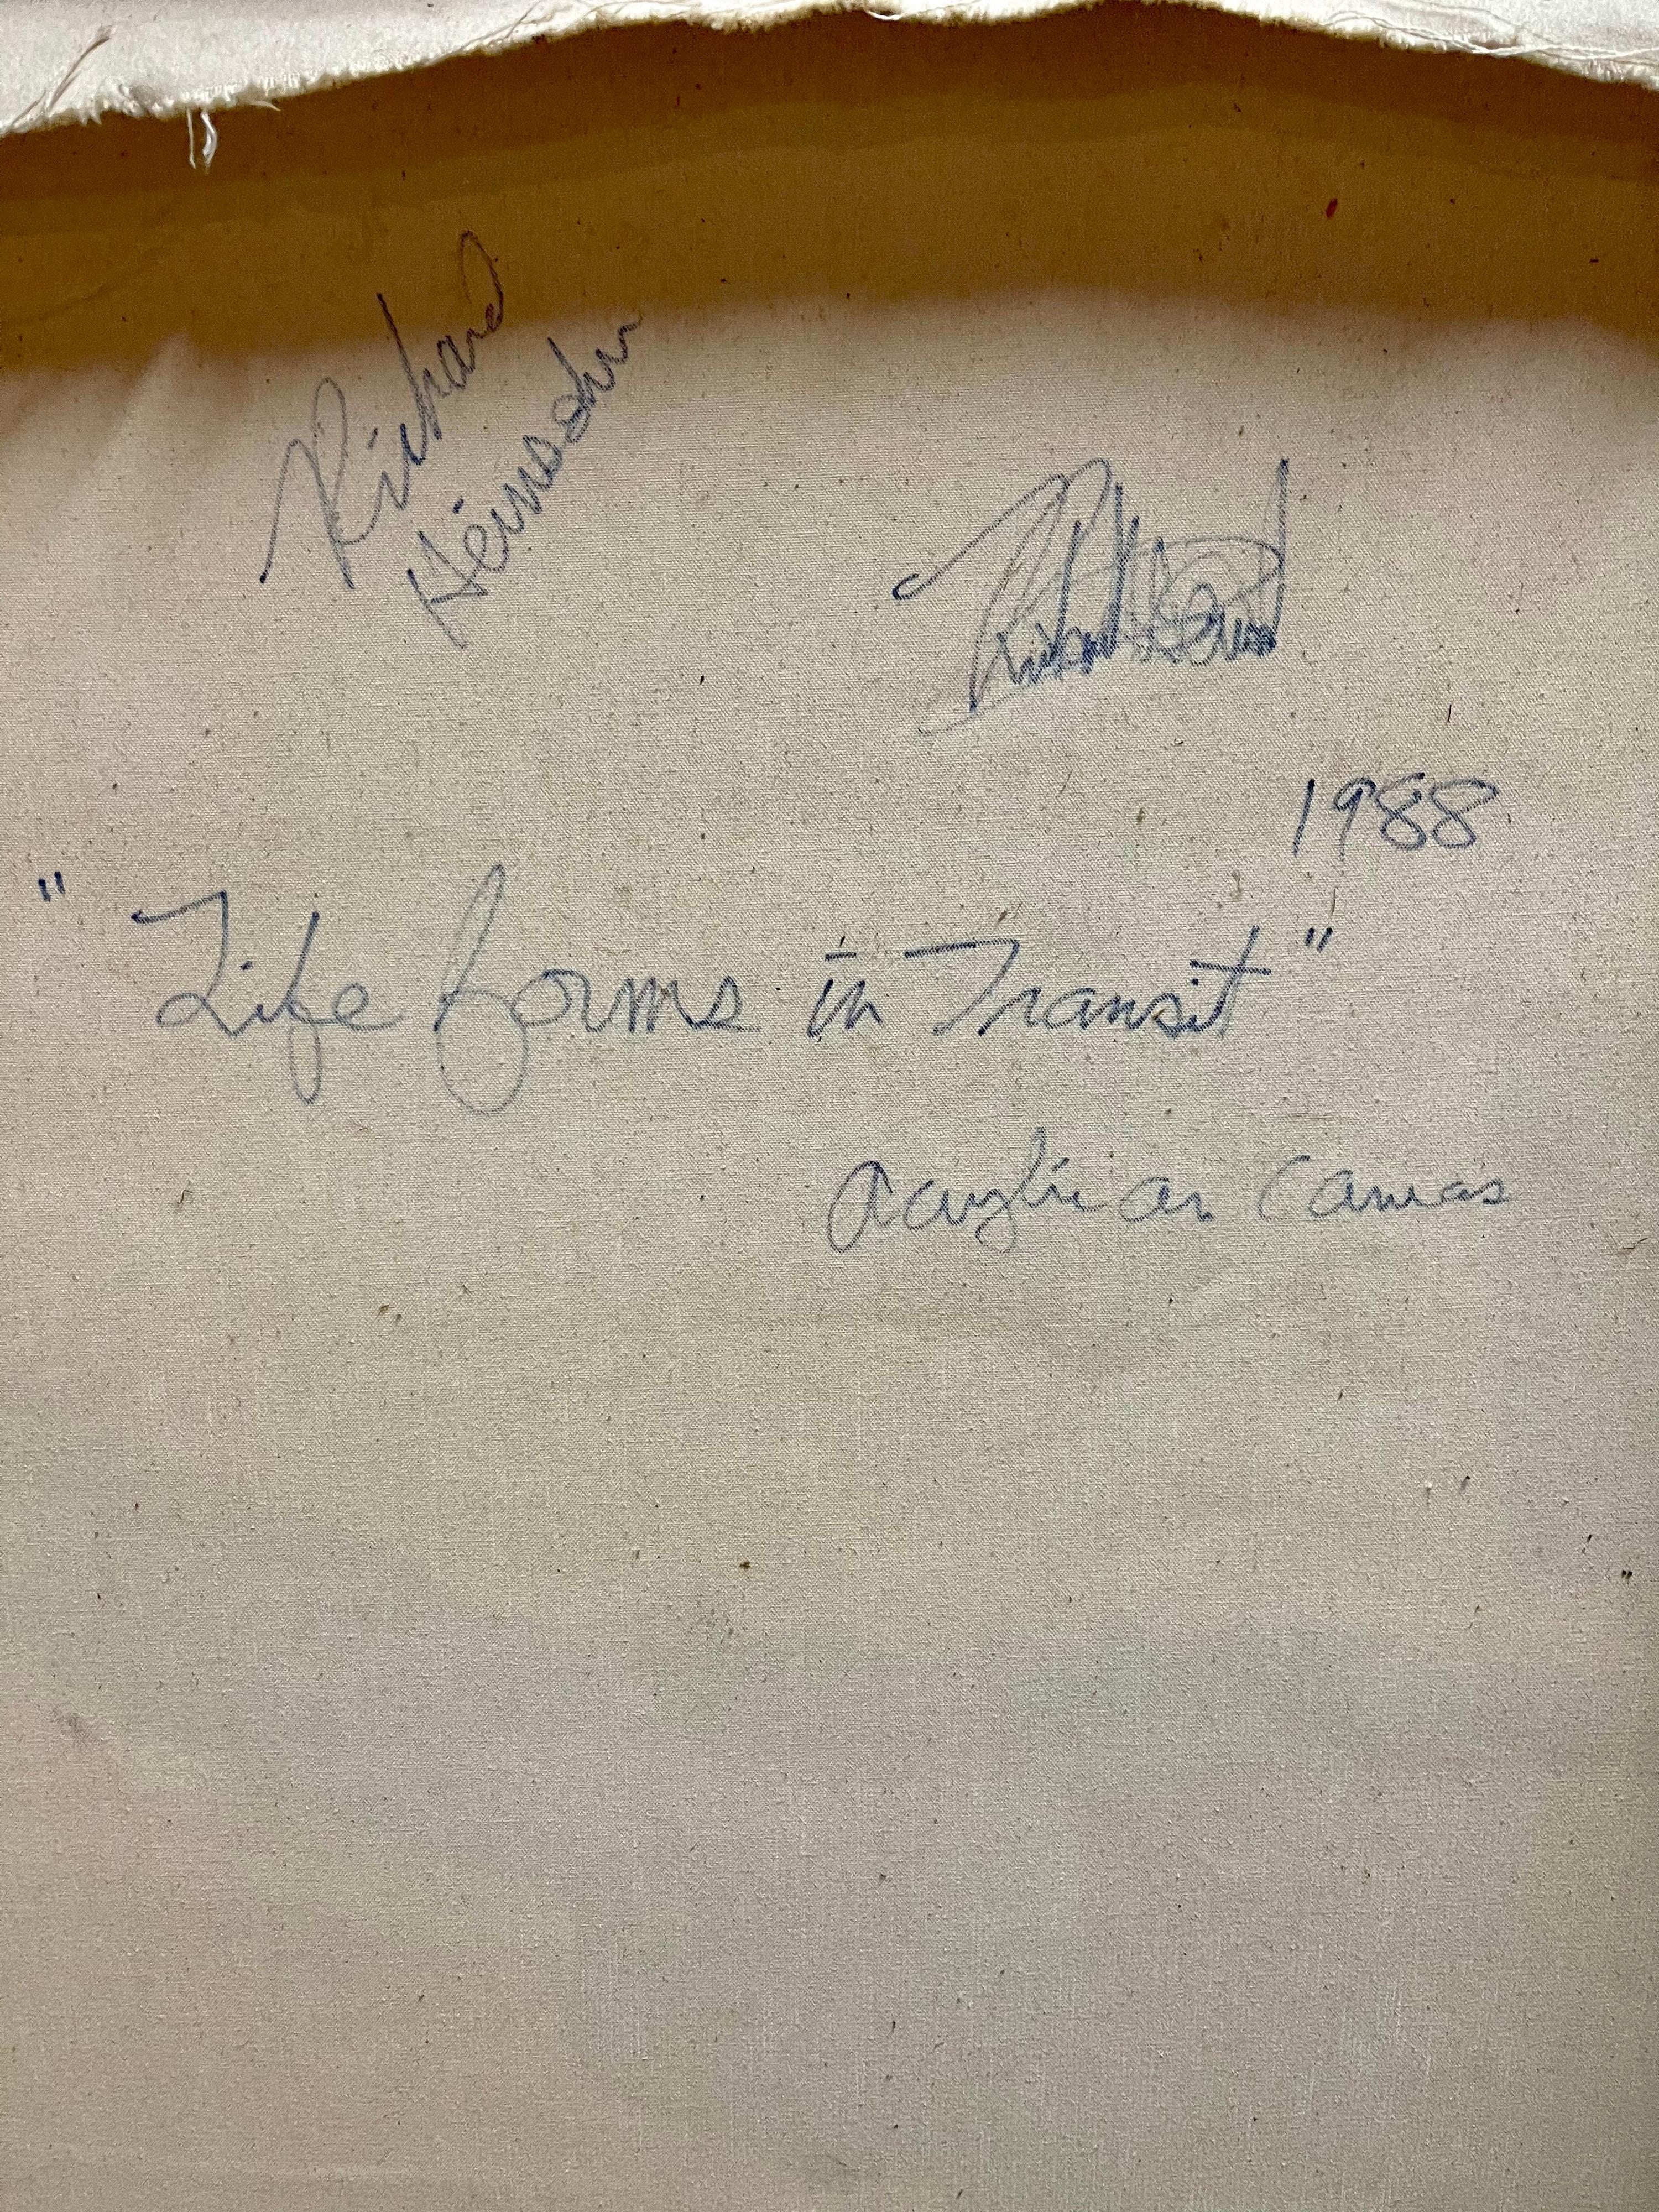 Richard
Heinsohn
1988
"Life forms in Transit"
Acrylic on Canvas